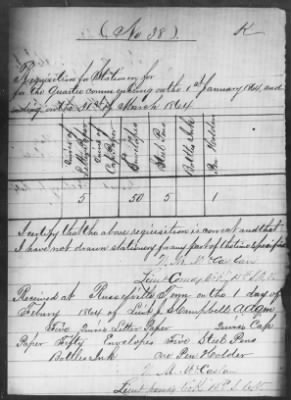 (No 38)
K
Requisition for Stationery for
for the Quarter commencing on the 1st January 1864, and
ending on the 31st of March 1864
Quires of Letter Paper
Quires of Cap Paper
Envelopes
Steel Pens
Bottles Ink
Pen Holders
5 50 5 1
I certify that the above requisition is correct and that
I have not drawn stationery for any part of the time specified
Lieut Comdg
Received at Russellville Tenn on the 1 day of
Febury 1864 of Lieut J. S. Campbell
Five Quires Letter Paper Quires Cap
Paper Fifty Envelopes Five Steel Pens
Bottles Ink one Pen Holder
Lieut